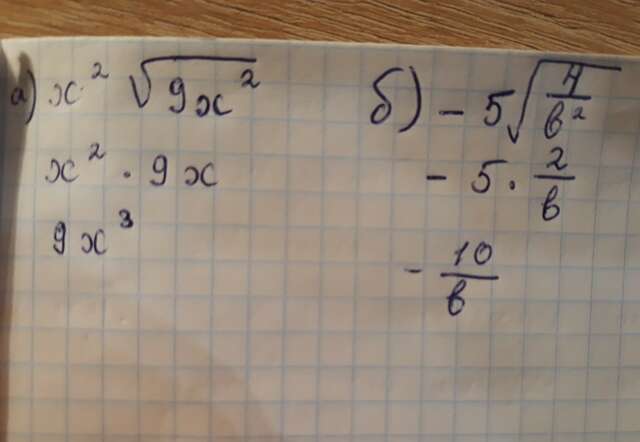 а) x² √9x²
x² · 9x
9x³
б) – 5√4/в²
– 5 · 2/в
– 10/в